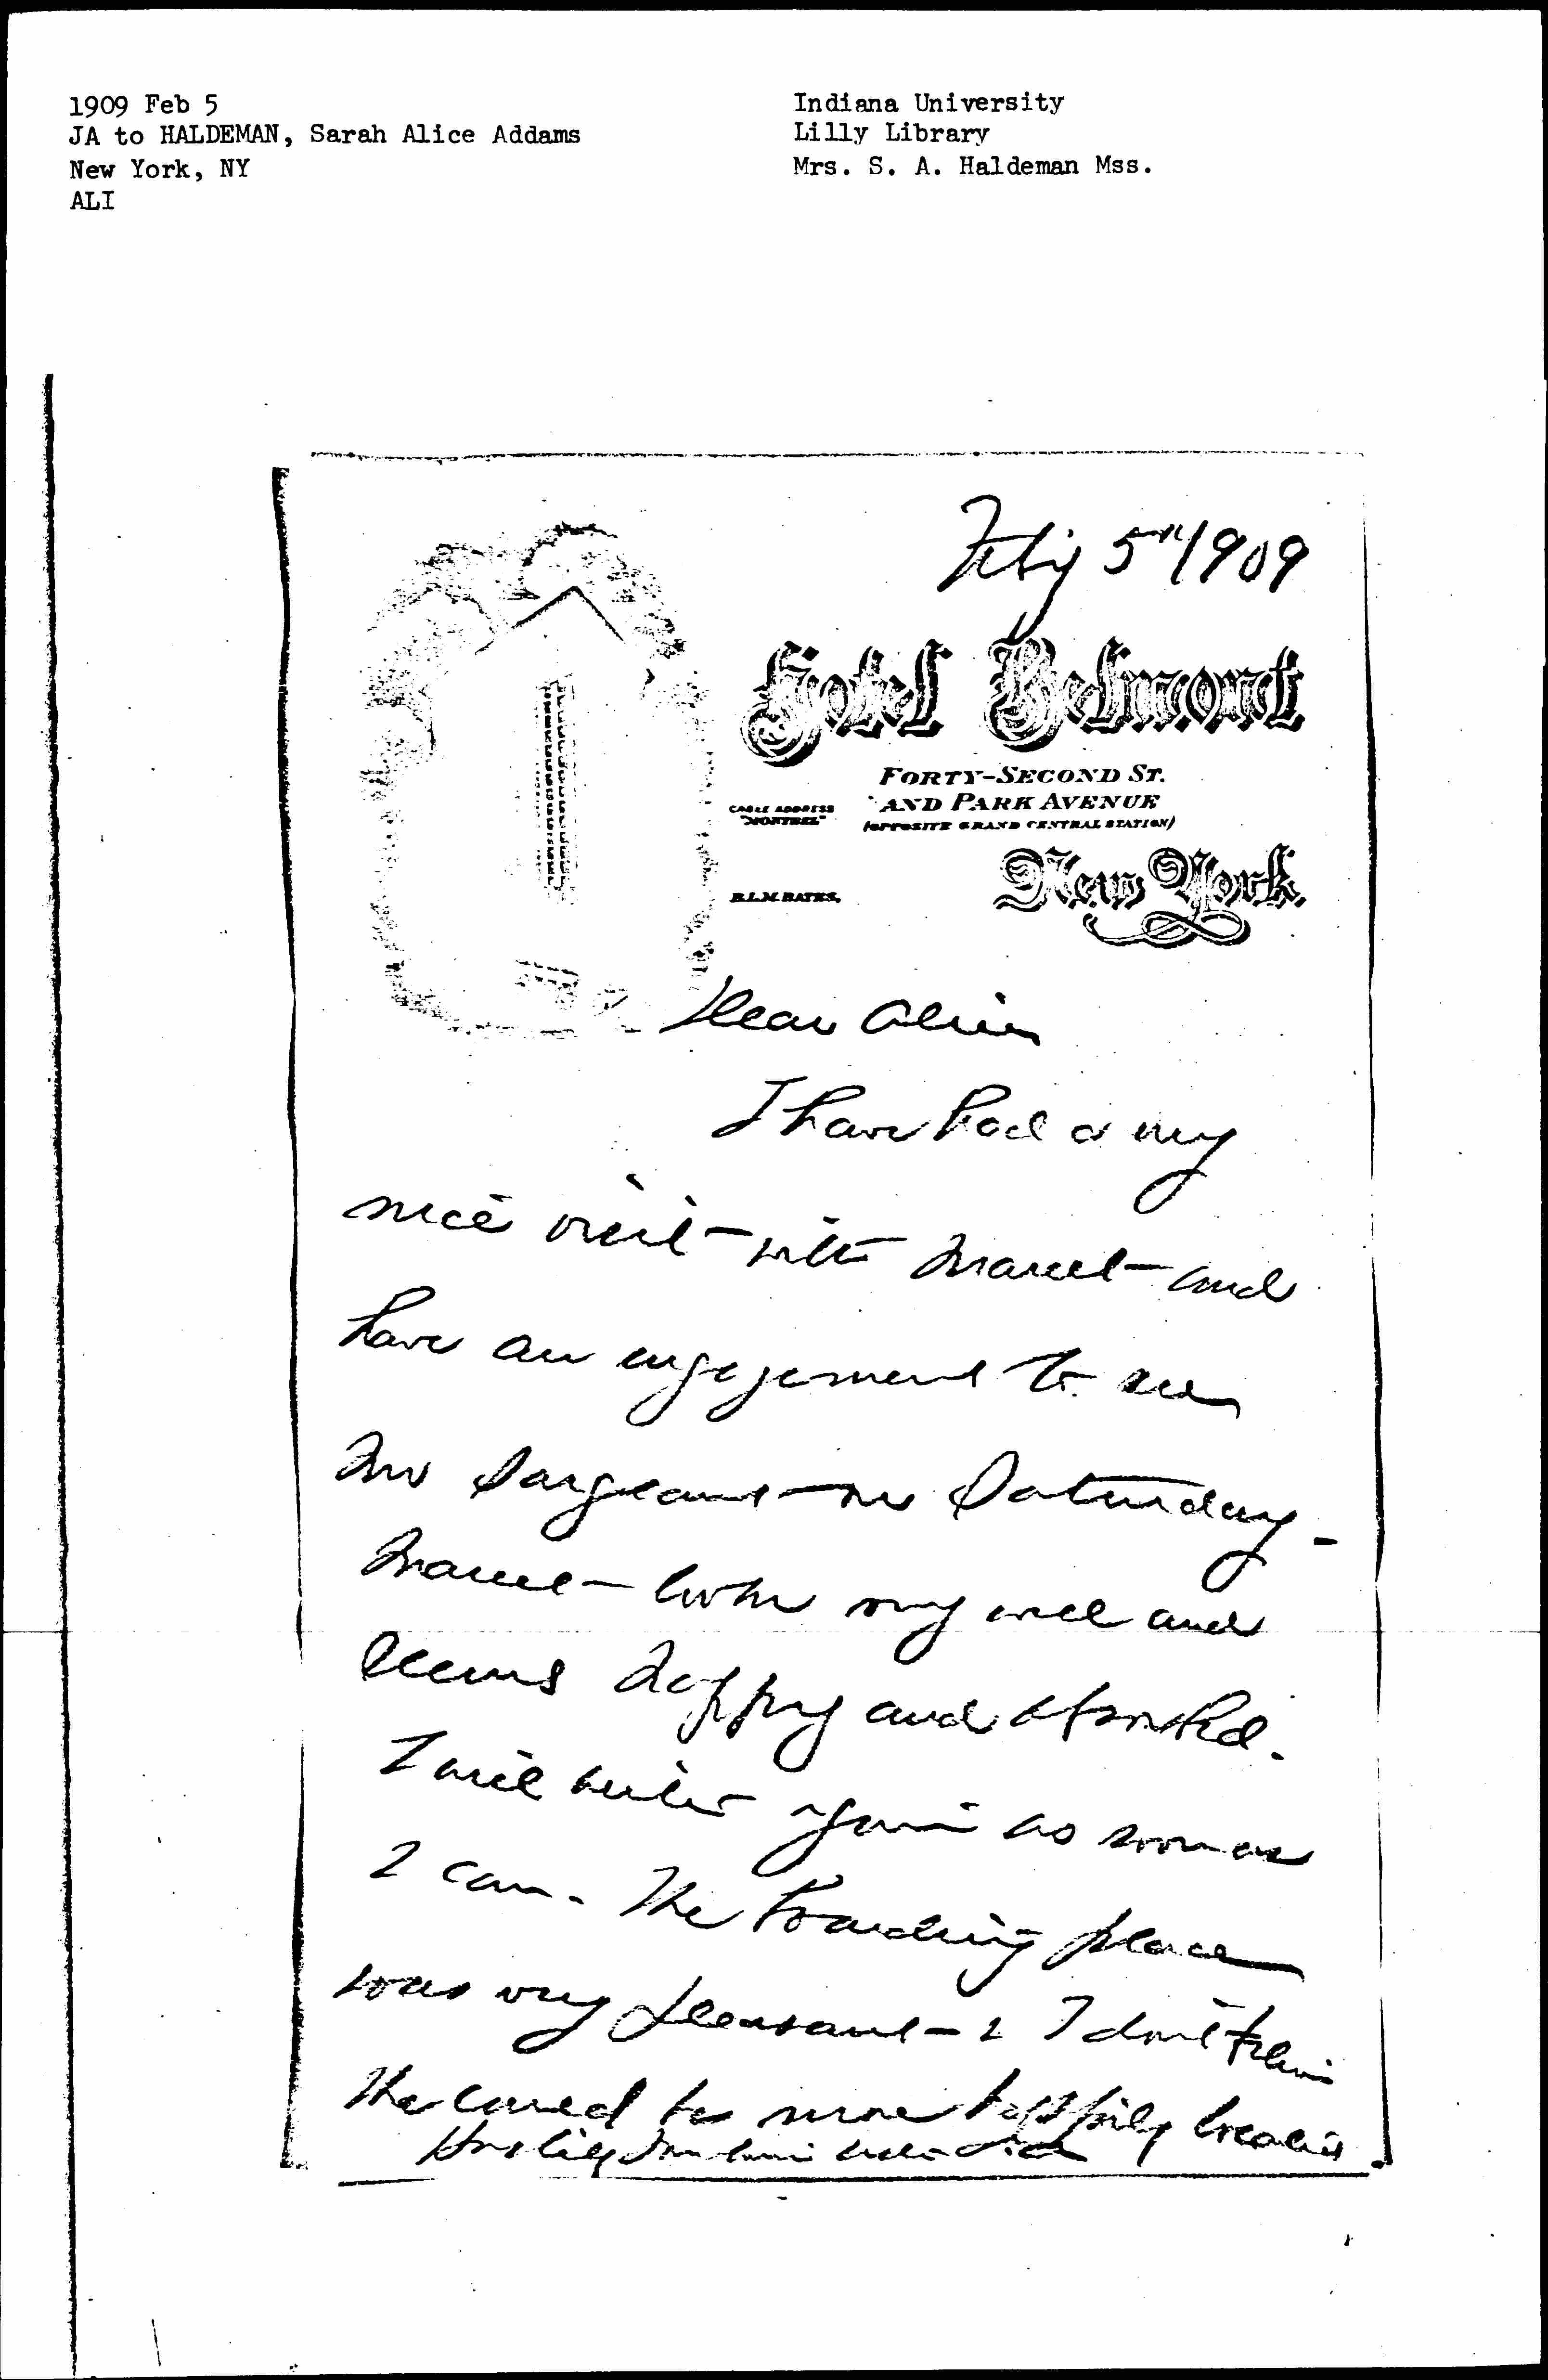 1909 Feb 5
JA to HALDEMAN, Sarah Alice Addams
New York, NY
ALI
Indiana University
Lilly Library
Mrs. S. A. Haldeman Mss.
Feb'y 5" 1909
Hotel Belmont
FORTY-SECOND ST.
AND PARK AVENUE
(OPPOSITE GRAND CENTRAL STATION)
CABLE ADDRESS
"MONTBEL"
B.L.M. BATES.
New York.
Dear Alice
I have had a very
nice visit with Marcet and
have an engagement to see
Mr Sargeant on Saturday -
Marcet looks very well and
seems happy and absorbed.
I will write again as soon as
I can. The boarding place
was very pleasant - & I don't
she could be more happily located
Hastily